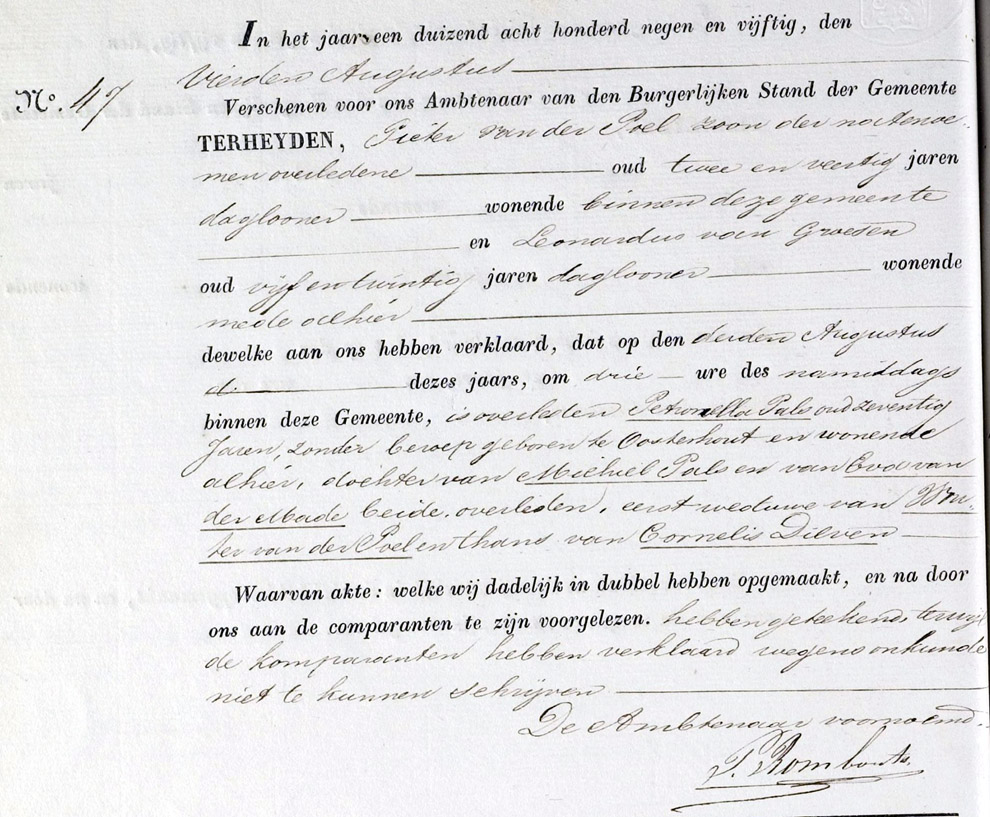 In het jaar een duizend acht honderd negen en vijftig, den
vierden Augustus
No. 47
Verschenen voor ons Ambtenaar van den Burgerlijken Stand der Gemeente
TERHEYDEN, Pieter van der Poel zoon der natenoe-
men overledene oud twee en veertig jaren
daglooner wonende binnen deze gemeente
en Leonardus van Groesen
oud vijf en twintig jaren daglooner wonende
mede alhier
dewelke aan ons hebben verklaard, dat op den derden Augustus
d. dezes jaars, om drie ure des namiddags
binnen deze Gemeente, is overleden Petronella Pals oud zeventig
Jaren, zonder beroep geboren te Oosterhout en wonende
alhier, dochter van Michiel Pals en van Eva van
der Made beide overleden, eerst weduwe van Wou-
ter van der Poel en thans van Cornelis Dilven
Waarvan akte: welke wij dadelijk in dubbel hebben opgemaakt, en na door
ons aan de comparanten te zijn voorgelezen. hebben geteekend, terwijl
de komparanten hebben verklaard wegens onkunde
niet te kunnen schrijven
De Ambtenaar voornoemd.
Rombouts